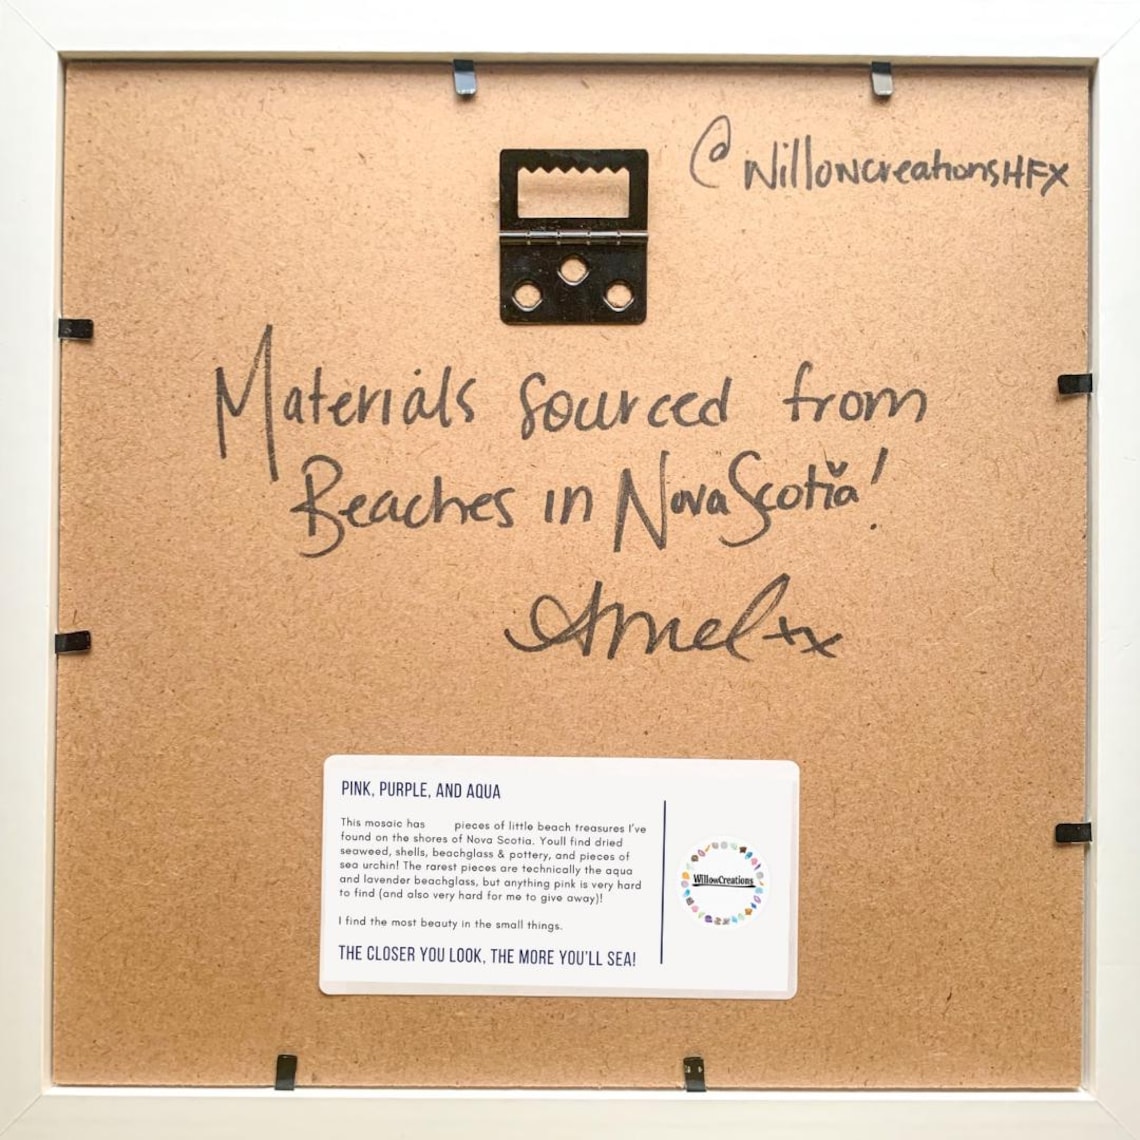 @WillowcreationsHFX
Materials Sourced from
Beaches in Nova Scotia!
xx
PINK, PURPLE, AND AQUA
This mosaic has pieces of little beach treasures I've
found on the shores of Nova Scotia. Youll find dried
seaweed, shells, beachglass & pottery, and pieces of
sea urchin! The rarest pieces are technically the aqua
and lavender beachglass, but anything pink is very hard
to find (and also very hard for me to give away)!
I find the most beauty in the small things.
THE CLOSER YOU LOOK, THE MORE YOU'LL SEA!
WillowCreations